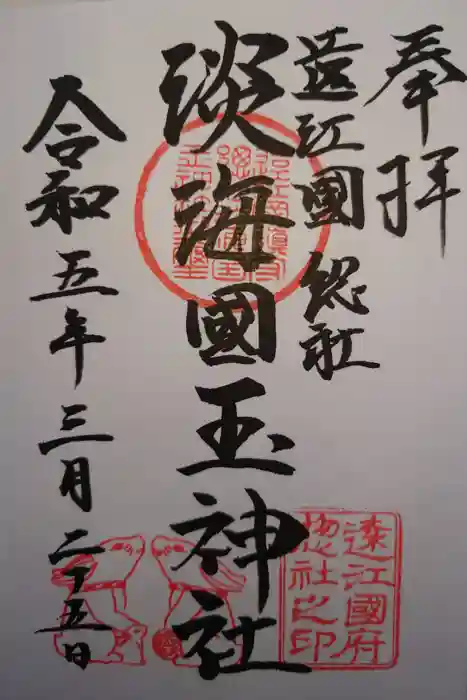 奉拝
遠江國総社
淡海國玉神社
令和五年三月二十五日
遠江國府
惣社之印